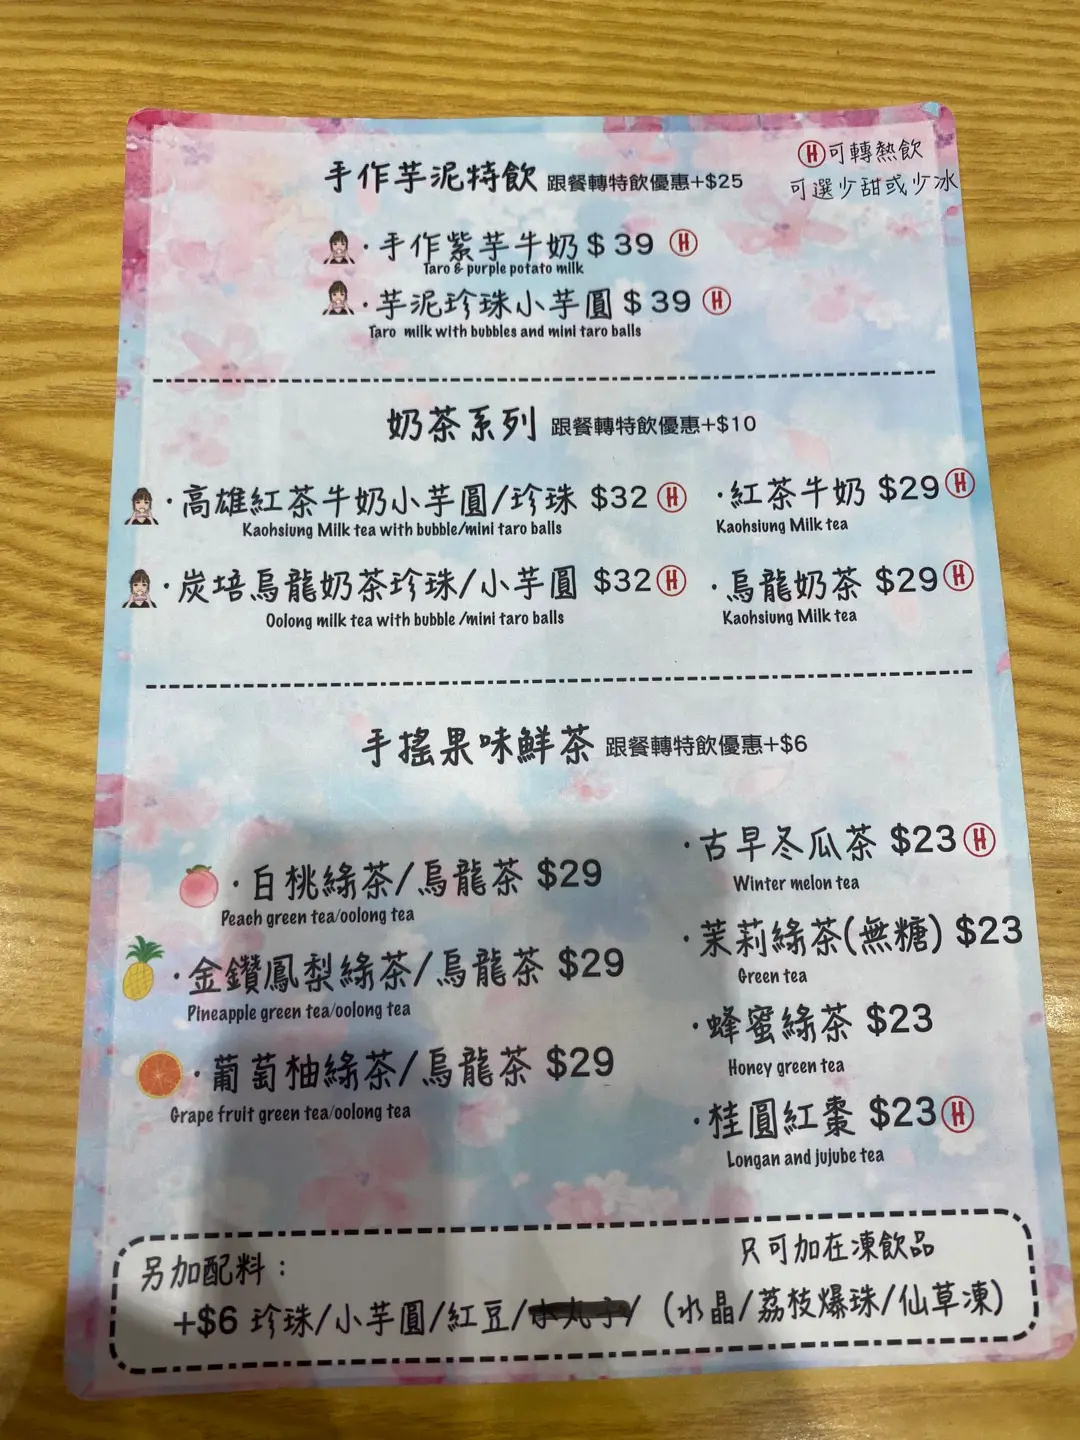 Ⓗ可轉熱飲
可選少甜或少冰
手作芋泥特飲 跟餐轉特飲優惠+$25
·手作紫芋牛奶 $39 Ⓗ
Taro & purple potato milk
·芋泥珍珠小芋圓 $39 Ⓗ
Taro milk with bubbles and mini taro balls
奶茶系列 跟餐轉特飲優惠+$10
·高雄紅茶牛奶小芋圓/珍珠 $32 Ⓗ
Kaohsiung Milk tea with bubble/mini taro balls
·紅茶牛奶 $29 Ⓗ
Kaohsiung Milk tea
·炭培烏龍奶茶珍珠/小芋圓 $32 Ⓗ
Oolong milk tea with bubble /mini taro balls
·烏龍奶茶 $29 Ⓗ
Kaohsiung Milk tea
手搖果味鮮茶 跟餐轉特飲優惠+$6
·白桃綠茶/烏龍茶 $29
Peach green tea/oolong tea
·金鑽鳳梨綠茶/烏龍茶 $29
Pineapple green tea/oolong tea
·葡萄柚綠茶/烏龍茶 $29
Grape fruit green tea/oolong tea
·古早冬瓜茶 $23 Ⓗ
Winter melon tea
·茉莉綠茶(無糖) $23
Green tea
·蜂蜜綠茶 $23
Honey green tea
·桂圓紅棗 $23 Ⓗ
Longan and jujube tea
另加配料：
只可加在凍飲品
+$6 珍珠/小芋圓/紅豆/小丸子/ (水晶/荔枝爆珠/仙草凍)